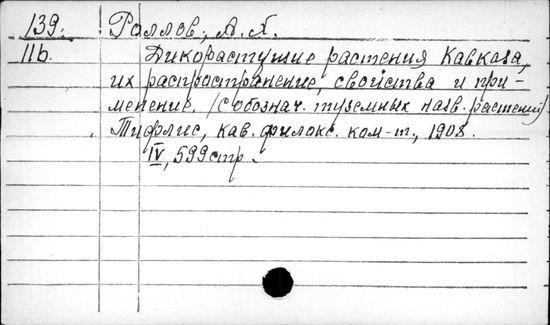 139. Роллов, А.Х.
11б. Дикорастущие растения Кавказа,
их распространение, свойства и при-
менение. (С обознач. туземных назв. растений)
Тифлис, кав. филокс. ком-т, 1908.
IV, 599 стр.